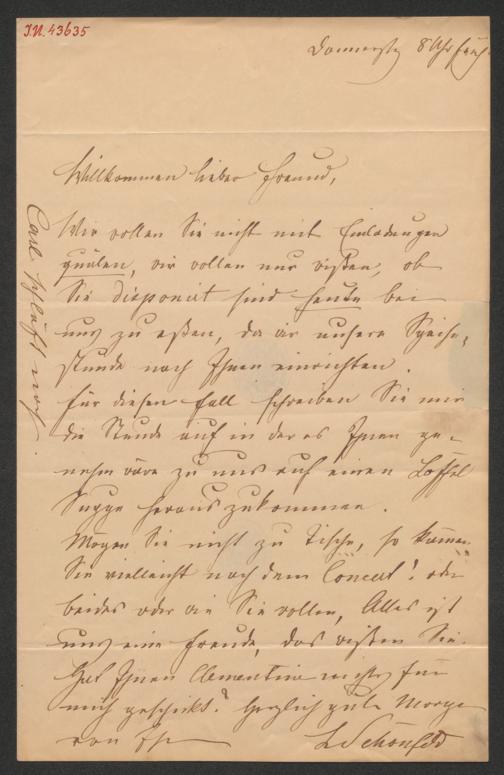 I.N. 43635
Donnerstg 8 Uhr früh.
Willkommen lieber Freund,
Wir wollen Sie nicht mit Einladungen
quälen, wir wollen nur wißen, ob
Sie disponirt sind heute bei
uns zu eßen, da wir unsere Speise-
stunde nach Ihnen einrichten.
Für diesen Fall schreiben Sie mir
die Stunde auf in der es Ihnen ge-
nehm wäre zu uns auf einen Löffel
Suppe heraus zu kommen.
Mögen Sie nicht zu Tische, so kommen
Sie vielleicht nach dem Concert! oder
beides oder wie Sie wollen, Alles ist
uns eine Freude, das wißen Sie.
Hat Ihnen Clementine nichts für
mich geschickt? Herzlich guten Morgen
von Ihr
LSchönfeld
Carl schläft noch.